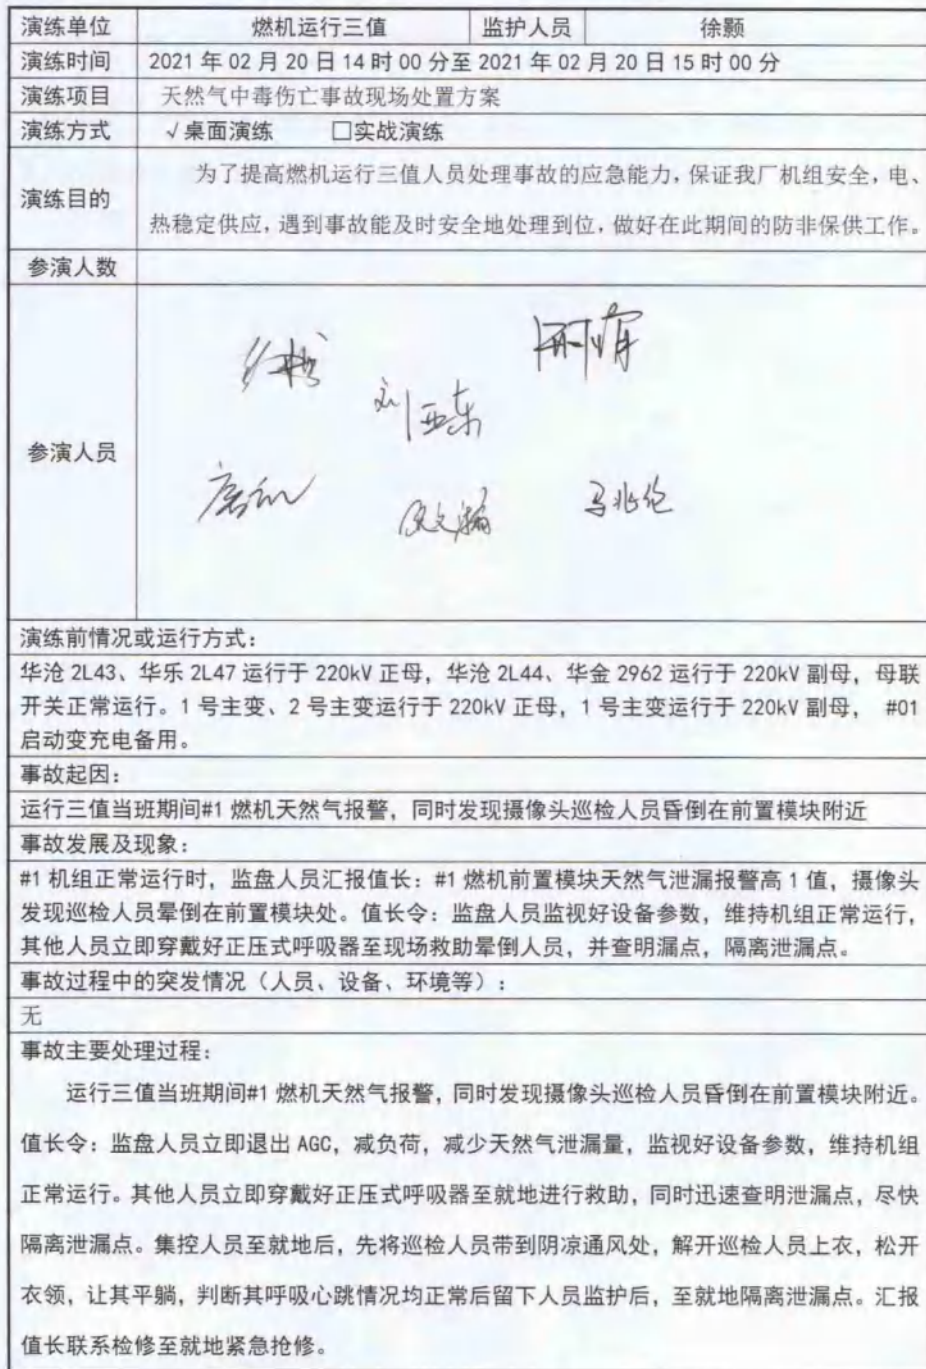 演练单位 燃机运行三值 监护人员 徐颢
演练时间 2021年02月20日14时00分至2021年02月20日15时00分
演练项目 天然气中毒伤亡事故现场处置方案
演练方式 √桌面演练 □实战演练
为了提高燃机运行三值人员处理事故的应急能力，保证我厂机组安全，电、
演练目的
热稳定供应，遇到事故能及时安全地处理到位，做好在此期间的防非保供工作。
参演人数
刘亚东
参演人员
马兆伦
演练前情况或运行方式：
华沧2L43、华乐2L47运行于220kV正母，华沧2L44、华金2962运行于220kV副母，母联
开关正常运行。1号主变、2号主变运行于220kV正母，1号主变运行于220kV副母， #01
启动变充电备用。
事故起因：
运行三值当班期间#1燃机天然气报警，同时发现摄像头巡检人员昏倒在前置模块附近
事故发展及现象：
#1机组正常运行时，监盘人员汇报值长：#1燃机前置模块天然气泄漏报警高1值，摄像头
发现巡检人员晕倒在前置模块处。值长令：监盘人员监视好设备参数，维持机组正常运行，
其他人员立即穿戴好正压式呼吸器至现场救助晕倒人员，并查明漏点，隔离泄漏点。
事故过程中的突发情况（人员、设备、环境等）：
无
事故主要处理过程：
运行三值当班期间#1燃机天然气报警，同时发现摄像头巡检人员昏倒在前置模块附近。
值长令：监盘人员立即退出AGC，减负荷，减少天然气泄漏量，监视好设备参数，维持机组
正常运行。其他人员立即穿戴好正压式呼吸器至就地进行救助，同时迅速查明泄漏点，尽快
隔离泄漏点。集控人员至就地后，先将巡检人员带到阴凉通风处，解开巡检人员上衣，松开
衣领，让其平躺，判断其呼吸心跳情况均正常后留下人员监护后，至就地隔离泄漏点。汇报
值长联系检修至就地紧急抢修。